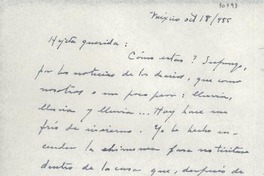 México oct 18/955
Hijita querida:
Cómo estas? Supongo,
por las noticias de los diarios, que como
nosotros o un poco peor: lluvia,
lluvia y lluvia... Hoy hace un
frío de invierno. Yo he hecho en-
cender la chimenea para no tiritar
dentro de la casa que, después de